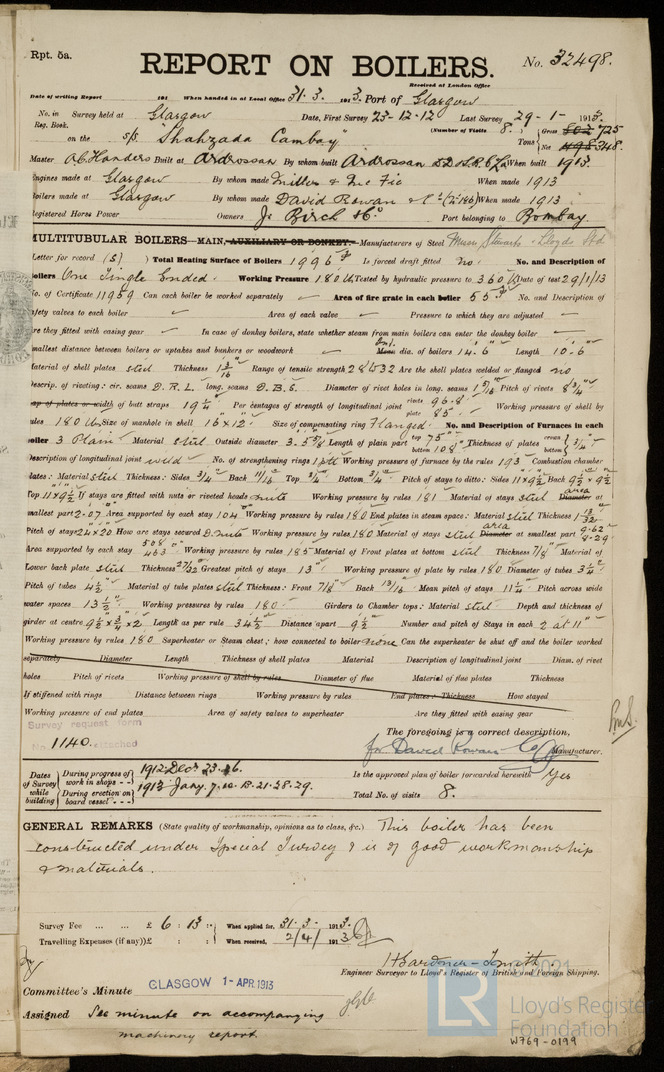 Rpt. 5a.
REPORT ON BOILERS.
No. 32498.
Received at London Office
Date of writing Report 191 When handed in at Local Office 31. 3. 1913. Port of Glasgow
No. in Survey held at Glasgow Date, First Survey 23-12-12 Last Survey 29-1-1913.
Reg. Book. (Number of Visits 8.) Gross 725
on the S/S "Shahzada Cambay" Tons Net 348.
Master Built at Ardrossan By whom built Ardrossan When built 1913.
Engines made at Glasgow By whom made When made 1913
Boilers made at Glasgow By whom made David Rowan & Co. When made 1913
Registered Horse Power Owners Birch Port belonging to Bombay.
MULTITUBULAR BOILERS—MAIN, AUXILIARY OR DONKEY.—Manufacturers of Steel
Letter for record (S) Total Heating Surface of Boilers 1996 Is forced draft fitted no. No. and Description of
Boilers One Single Ended. Working Pressure 180 Tested by hydraulic pressure to 360 Date of test 29/1/13
No. of Certificate 11959 Can each boiler be worked separately Area of fire grate in each boiler 55 No. and Description of
safety valves to each boiler Area of each valve Pressure to which they are adjusted
Are they fitted with easing gear In case of donkey boilers, state whether steam from main boilers can enter the donkey boiler
Smallest distance between boilers or uptakes and bunkers or woodwork Mean dia. of boilers 14.6 Length 10-6
Material of shell plates steel Thickness 1 3/16 Range of tensile strength 28 to 32 Are the shell plates welded or flanged no
Descrip. of riveting: cir. seams D.R.L. long. seams D.B.S. Diameter of rivet holes in long. seams 1 5/16 Pitch of rivets 8 3/4
Lap of plates or width of butt straps 19 1/4 Per centages of strength of longitudinal joint rivets 96.8 plate 85. Working pressure of shell by
rules 180 lbs Size of manhole in shell 16 x 12 Size of compensating ring Flanged No. and Description of Furnaces in each
boiler 3 Plain Material steel Outside diameter 3. 5 5/8 Length of plain part top 75" bottom 108" Thickness of plates crown bottom 3/4
Description of longitudinal joint weld No. of strengthening rings Working pressure of furnace by the rules 193 Combustion chamber
plates: Material steel Thickness: Sides 3/4 Back 11/16 Top 3/4 Bottom 3/4 Pitch of stays to ditto: Sides 11 x 9 1/2 Back 9 1/2 x 9 1/2
Top 11 x 9 1/2 If stays are fitted with nuts or riveted heads nuts Working pressure by rules 181 Material of stays steel area Diameter at
smallest part 2.07 Area supported by each stay 104 Working pressure by rules 180 End plates in steam space: Material steel Thickness 1 3/32
Pitch of stays 24 x 20 How are stays secured D. nuts Working pressure by rules 180 Material of stays steel area Diameter at smallest part 9.62 8.29
Area supported by each stay 508 463 Working pressure by rules 185 Material of Front plates at bottom steel Thickness 7/8 Material of
Lower back plate steel Thickness 27/32 Greatest pitch of stays 13" Working pressure of plate by rules 180 Diameter of tubes 3 1/4
Pitch of tubes 4 1/2 Material of tube plates steel Thickness: Front 7/8 Back 13/16 Mean pitch of stays 11 1/4 Pitch across wide
water spaces 13 1/2 Working pressures by rules 180. Girders to Chamber tops: Material steel Depth and thickness of
girder at centre 9 1/2 x 3/4 x 2 Length as per rule 34 1/2 Distance apart 9 1/2 Number and pitch of Stays in each 2 at 11"
Working pressure by rules 180 Superheater or Steam chest; how connected to boiler none Can the superheater be shut off and the boiler worked
separately Diameter Length Thickness of shell plates Material Description of longitudinal joint Diam. of rivet
holes Pitch of rivets Working pressure of shell by rules Diameter of flue Material of flue plates Thickness
If stiffened with rings Distance between rings Working pressure by rules End plates: Thickness How stayed
Working pressure of end plates Area of safety valves to superheater Are they fitted with easing gear
Survey request form
No. 1140. attached
The foregoing is a correct description,
for David Rowan & Co. Manufacturer.
Dates of Survey while building During progress of work in shops 1912 Decr 23. 26. Is the approved plan of boiler forwarded herewith Yes
During erection on board vessel 1913 Jany. 7. 10. 13. 21. 28. 29. Total No. of visits 8.
GENERAL REMARKS (State quality of workmanship, opinions as to class, &c.) This boiler has been
constructed under Special Survey & is of good workmanship
& materials.
Survey Fee £ 6 : 13 : When applied for, 31-3-1913.
Travelling Expenses (if any) £ : : When received, 2/4/1913
H Gardner-Smith
Engineer Surveyor to Lloyd's Register of British and Foreign Shipping.
Committee's Minute GLASGOW 1-APR.1913
Assigned See minute on accompanying
machinery report.
LR 2021
Lloyd's Register
Foundation
W769-0199